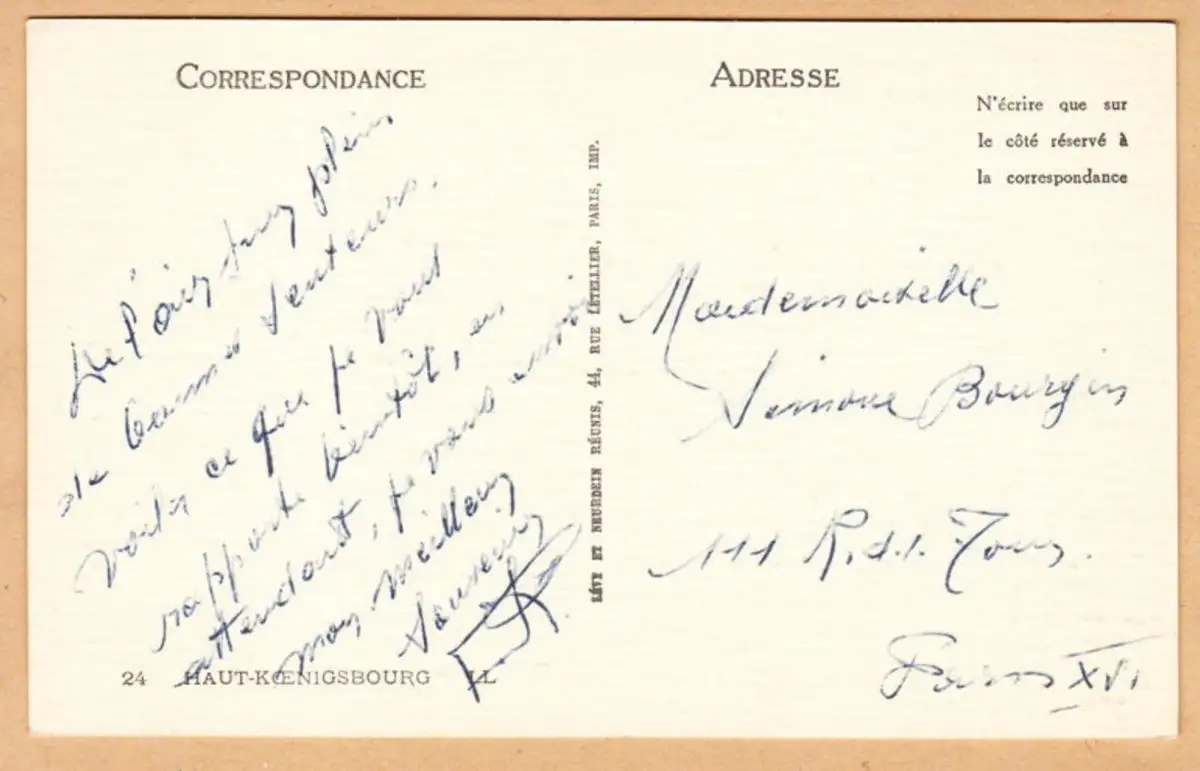 CORRESPONDANCE
De l'air pur plein
de bonnes senteurs,
voilà ce que je vous
rapporte bientôt, en
attendant, je vous envoie
mon meilleur
souvenir
24 HAUT-KŒNIGSBOURG LL
LÉVY ET NEURDEIN RÉUNIS, 44, RUE LETELLIER, PARIS, IMP.
ADRESSE
N'écrire que sur
le côté réservé à
la correspondance
Mademoiselle
Simone Bourgin
111 R. d. l. Tour.
Paris XVI